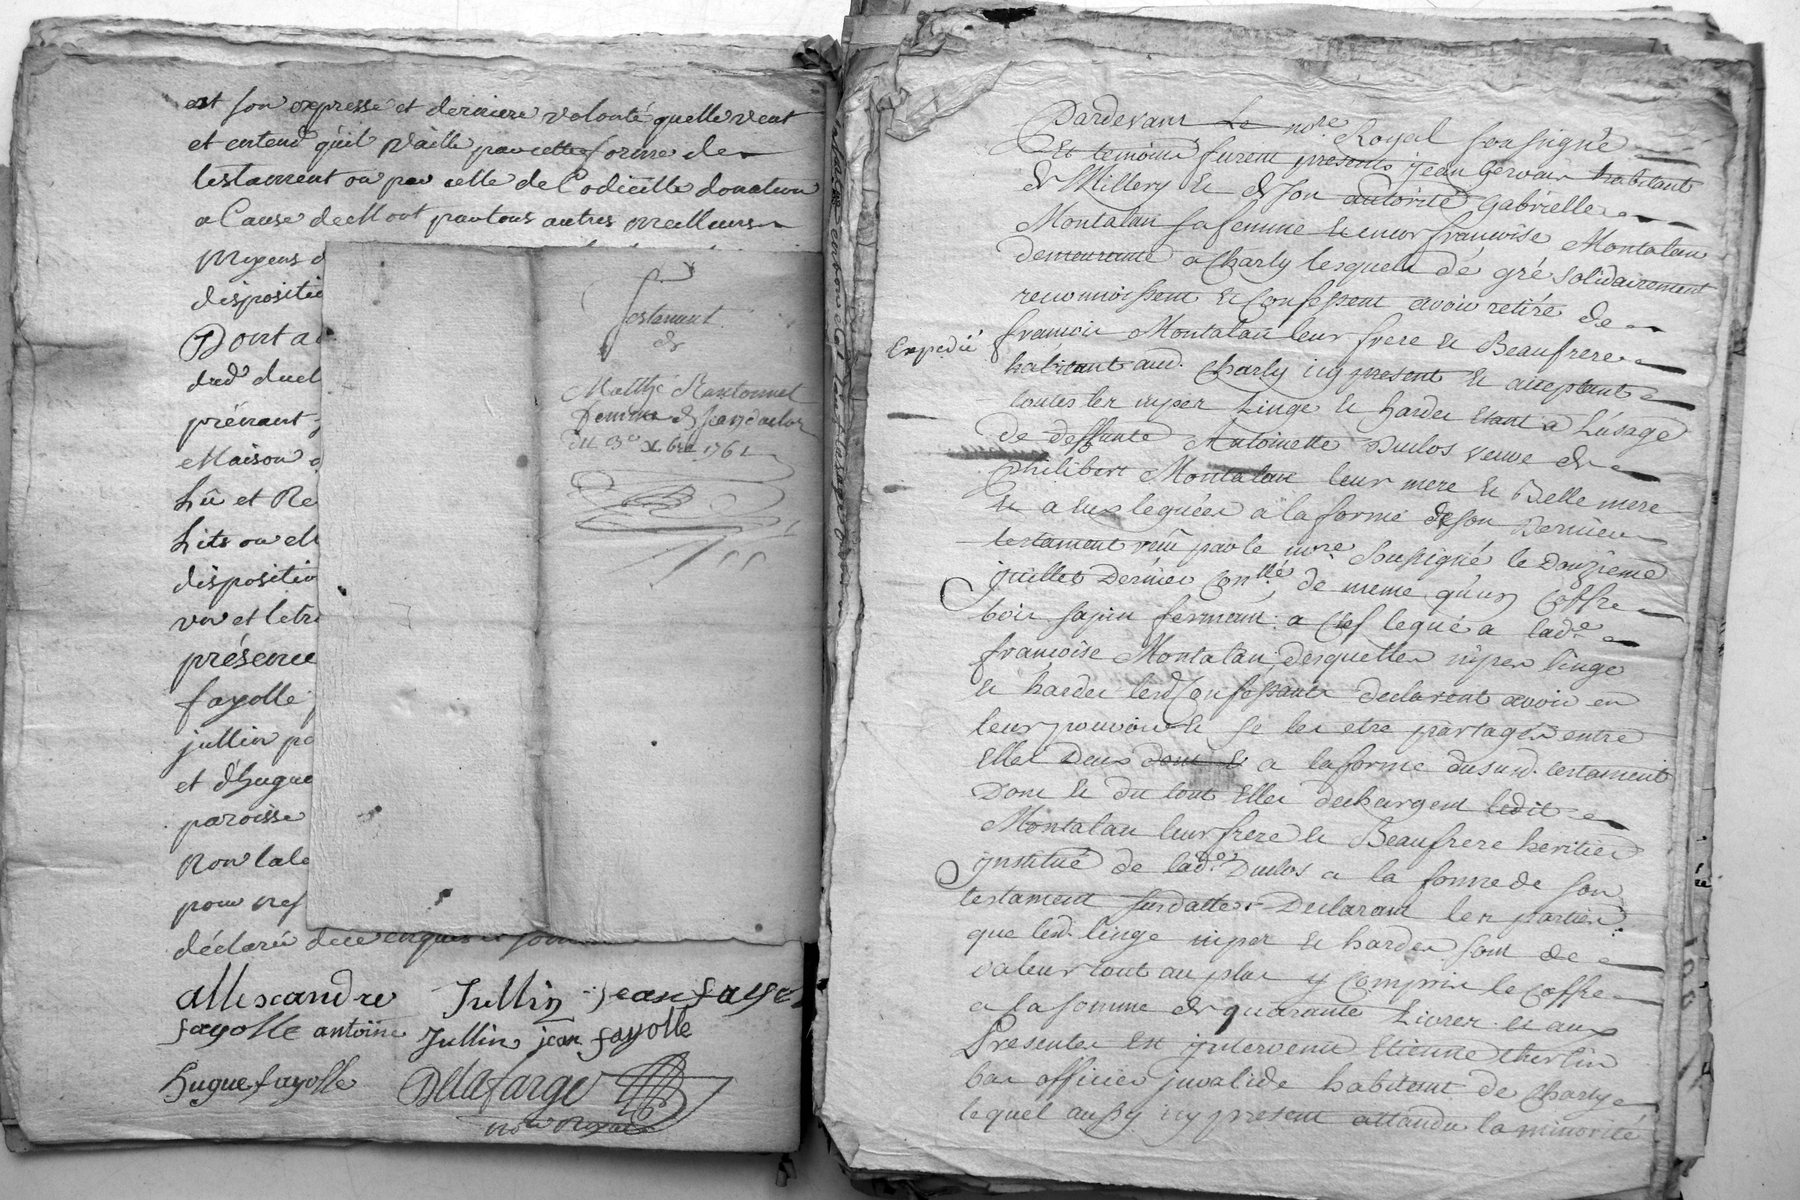 est son expresse et derniere volonté quelle veut
et entend qu'il vaille par cette forme de
testament ou par celle de Codicille donation
a Cause de Mort par tous autres meilleurs
Moyens d
dispositio
Dont a
dud. duc
prénant
Maison
Lû et Re
Lits ou
dispositio
vu et
présence
fayolle
jullin pa
et d'hugue
paroisse
Non
pour
déclaré de ce enquis et
allexandre Jullin jean faye
fayolle antoine Jullin jean fayolle
hugue fayolle Delafarge
nore Royal
Testament
de
Matthé
Femme de Jean duclos
du 3e Xbre 1761
Pardevant Le nore Royal soussigné
Et temoins furent presents Jean Gervais habitant
de Millery et de son autorité Gabrielle
Montalan sa femme et encor françoise Montalan
demeurante a Charly lesquels de gré solidairement
reconnoissent et Confessent avoir retiré de
françois Montalan leur frere et Beaufrere
Expedié
habitant aud. Charly icy present et acceptant
toutes les nipes Linge et hardes etant a L'usage
de deffunte Antoinette Duclos veuve de
Philibert Montalan leur mere et Belle mere
et a eux leguées a la forme de son Dernier
testament reçû par le nore soussigné le Douzieme
juillet Dernier Conllé, de meme qu'un Coffre
bois sapin fermant a Clef legué a lade
françoise Montalan, desquelles nipes linge
et hardes lesd. Confessants declarent avoir en
leur pouvoir et se les etre partagés entre
Elles Deux a la forme dususd. testament
Dont et du tout Elles dechargent ledit
Montalan leur frere et Beaufrere heritier
institué de lade Duclos a la forme de son
testament susdatté. Declarant les parties
que lesd. linge nipes et hardes sont de
valeur tout au plus y Compris le Coffre
a la somme de quarante Livres et aux
Presentes est intervenu Etienne
bas officier invalide habitant de Charly
lequel aussy icy present attandu la minorité